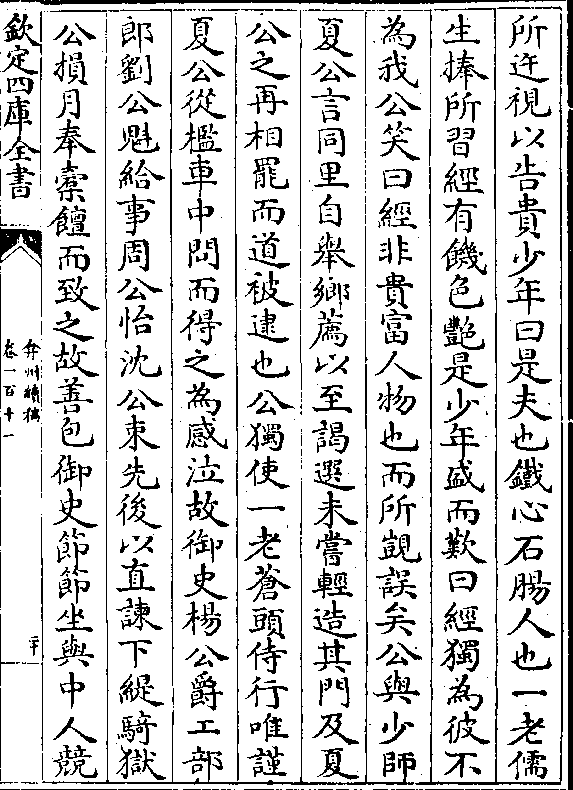 所迕視以告貴少年曰是夫也鐵心石腸人也一老儒
生捧所習經有饑色艶是少年盛而歎曰經獨為彼不
為我公笑曰經非貴富人物也而所覬誤矣公與少師
夏公言同里自舉鄉薦以至謁選未嘗輕造其門及夏
公之再相罷而道被逮也公獨使一老蒼頭侍行唯謹
夏公從檻車中問而得之為感泣故御史楊公爵工部
郎劉公魁給事周公怡沈公束先後以直諫下緹騎獄
公損月奉橐饘而致之故善包御史節節坐與中人競
欽定四庫全書
弇州續稿
卷一百十一
二十